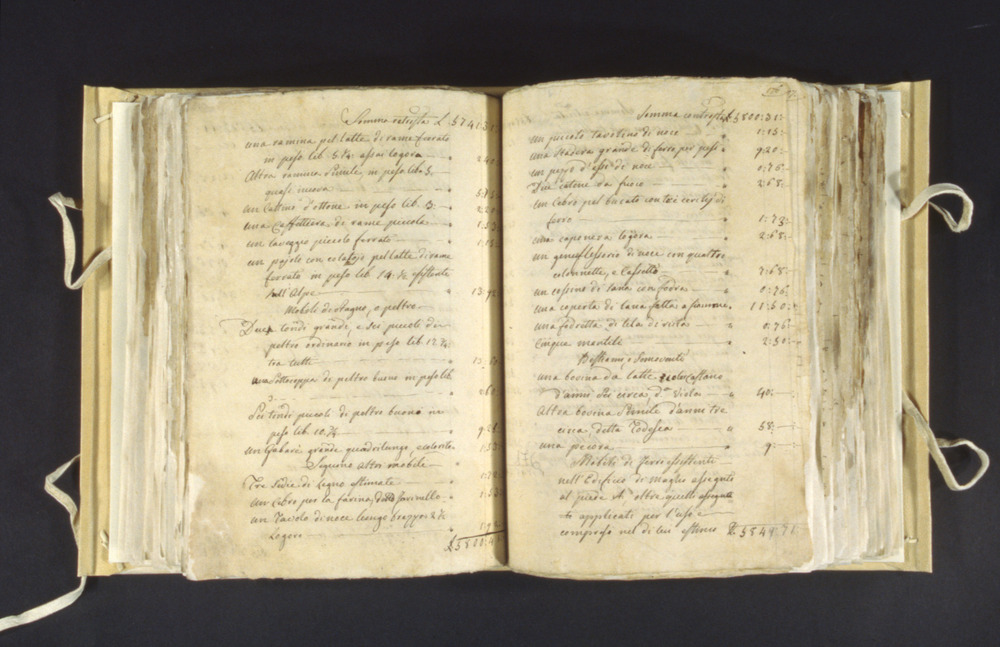 Somma retrosta £ 5741:31
una ramina pel latte di rame ferrato
in peso lib. 5¼ assai logora
Altra ramina simile in peso lib. 3
quasi nuova
un Cattino d'ottone in peso lib. 3
una Caffettiera di rame piccola
un laveggio piccolo ferrato
un pajolo con colatojo pel latte di rame
ferrato in peso lib. 14:½ esistente
sull'Alpe
Mobili di stagno, o peltro
Due tondi grandi, e sei piccoli di
peltro ordinario in peso lib. 12¾
tra tutti
una Sottocoppa di peltro buono in peso lib.
3
Sei tondi piccoli di peltro buono in
peso lib. 10.¾
un Gabarè grande quadrilungo colorito
Seguono altri mobili
Tre Sedie di legno stimate
un Cebro per la farina detto farinello
un Tavolo di noce lungo brazza 2½
Logoro
£ 5800:
Somma controsta £ 5800:31:
un piccolo tavolino di noce 1:15:
una stadera grande di ferro per pesi 9:20:
un pezzo d'assi di noce 0:76:
Due catene da fuoco 2:68:
un Cebro pel bucato con tre cerchj di
ferro 1:73:
una caponera logora 2:68:
un genuflessorio di noce con quattro
colonnette, e Cassetto 7:68:
un cossino di lana con fodra 0:76
una coperta di lana fatta a fiamme 11:50:
una fodretta di tela di vista 0:76:
Cinque mantili 2:30:
Bestiami, e Semoventi
una bovina da latte color Castano
d'anni sei circa, da vista 40:
Altra bovina simile d'anni tre
circa detta Todesca 58:
una pecora 9:
Mobili di ferro esistenti
nell'Edificio di Maglio assegnati
al piede oltre quelli assegnati
ti applicati per l'uso e
compresi nel di lui estimo £ 5949:71